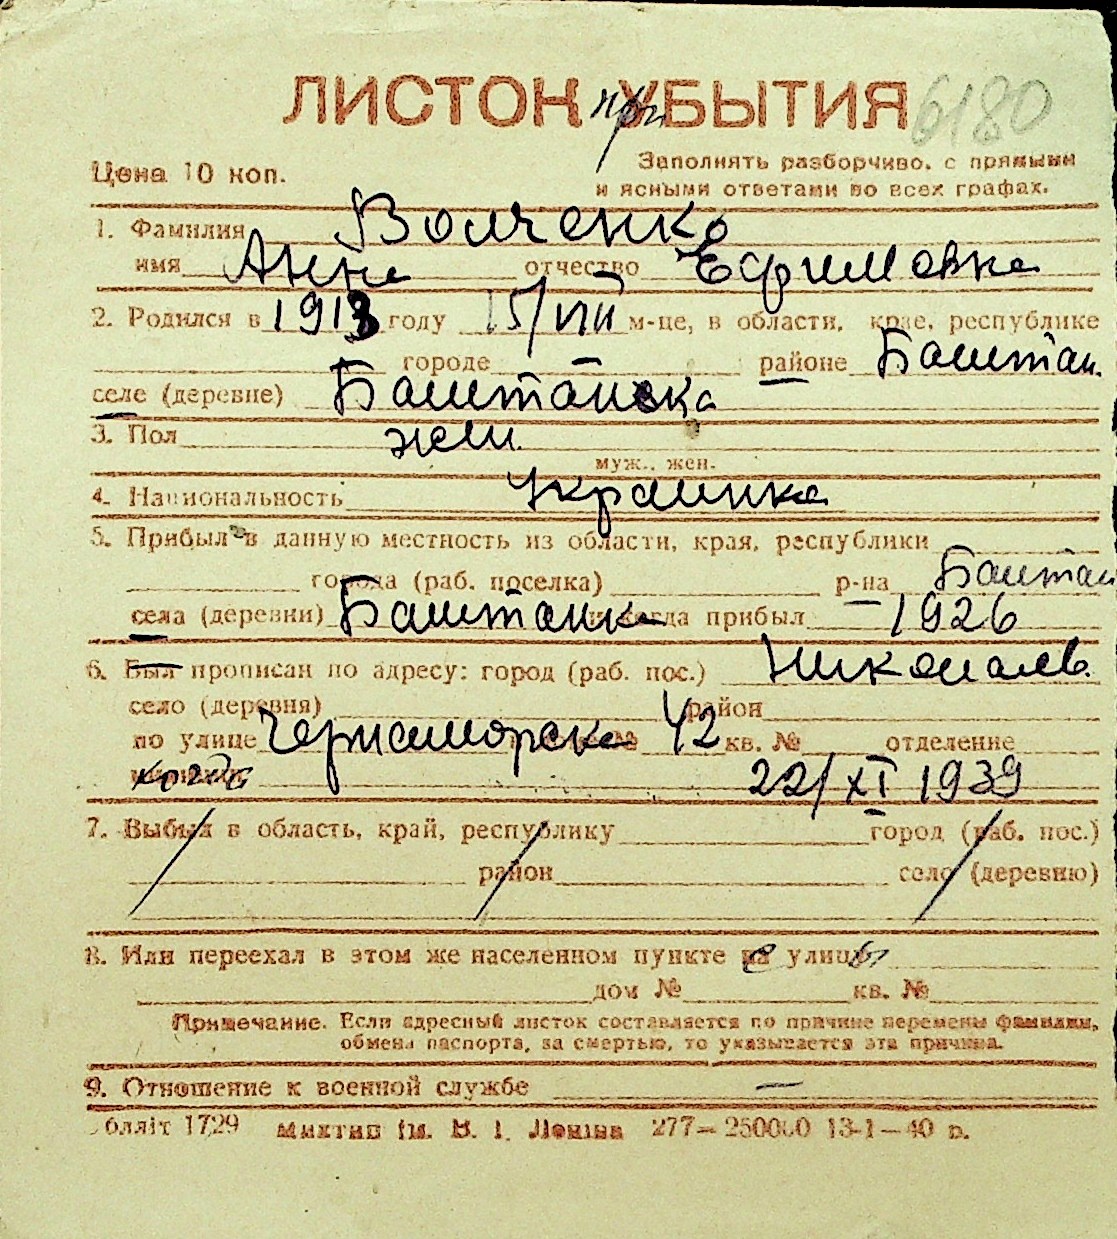 ЛИСТОК при УБЫТИЯ 6180
Цена 10 коп.
Заполнять разборчиво, с прямыми
и ясными ответами во всех графах.
1. Фамилия Волченко
имя Анна отчество Ефимовна
2. Родился в 1913 году 15/VIII м-це, в области, крае, республике
городе районе Баштан.
селе (деревне) Баштанка
3. Пол жен.
муж., жен.
4. Национальность украинка
5. Прибыл в данную местность из области, края, республики
города (раб. поселка) р-на Баштан
села (деревни) Баштанка и когда прибыл 1926
6. Был прописан по адресу: город (раб. пос.) Николаев.
село (деревня) район
по улице Черноморска № 42 кв. № отделение
когда 22/XI 1939
7. Выбыл в область, край, республику город (раб. пос.)
район село (деревню)
8. Или переехал в этом же населенном пункте с улицы
дом № кв. №
Примечание. Если адресный листок составляется по причине перемены фамилии,
обмена паспорта, за смертью, то указывается эта причина.
9. Отношение к военной службе —
облліт 1729 Миктип ім. В. І. Леніна 277—250000 13-1—40 р.